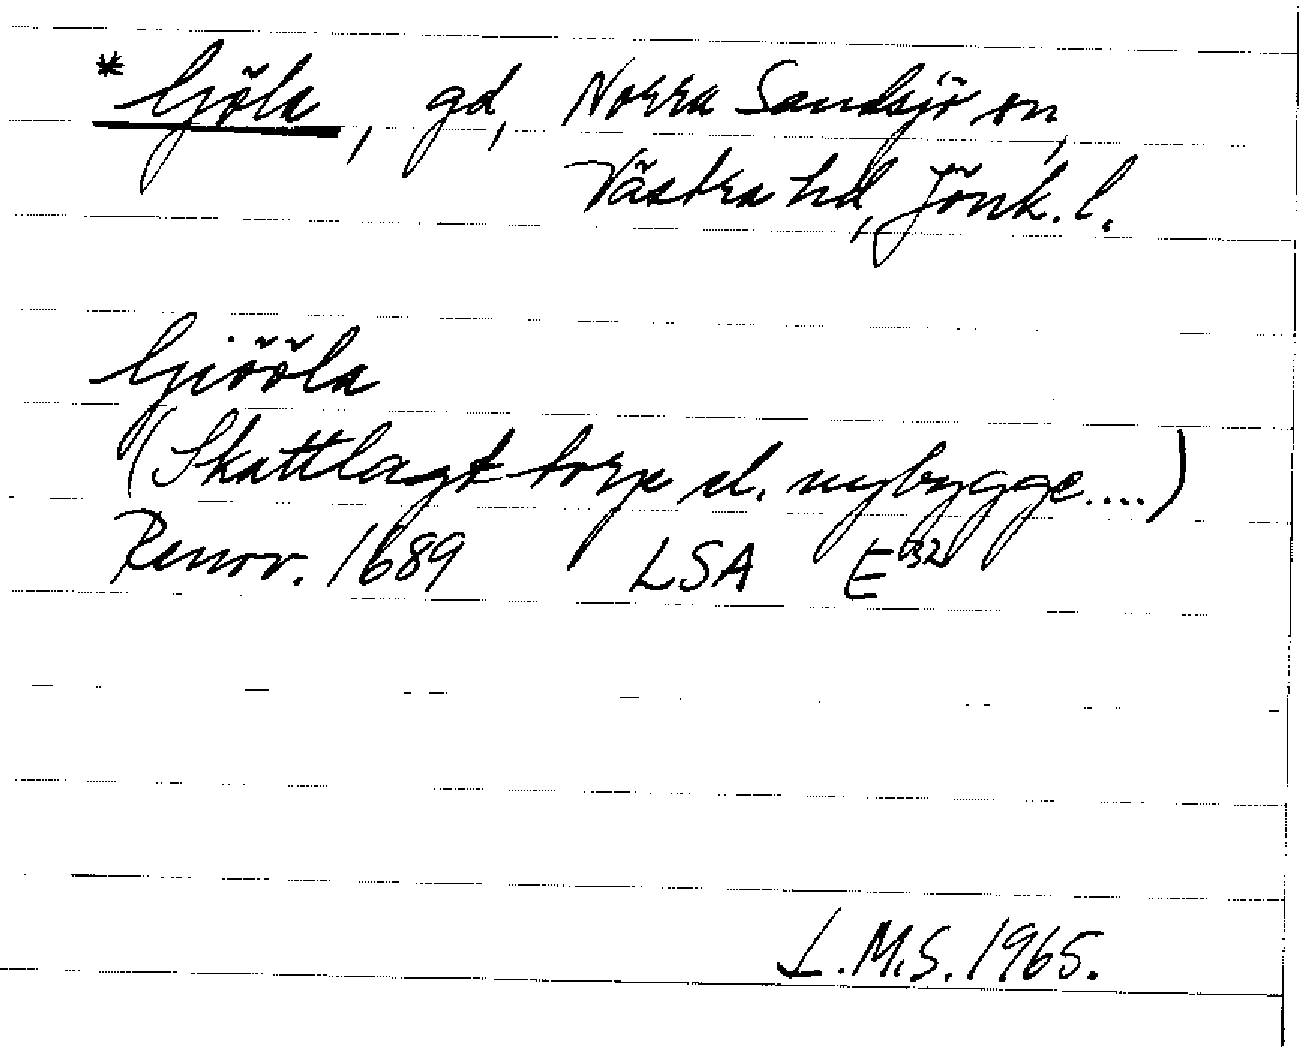 * Gjöla, gd, Norra Sandsjö sn,
Västra hd, Jönk. l.
Giööla
(Skattlagt torp el. nybygge....)
Renov. 1689 LSA E32
L.M.S. 1965.